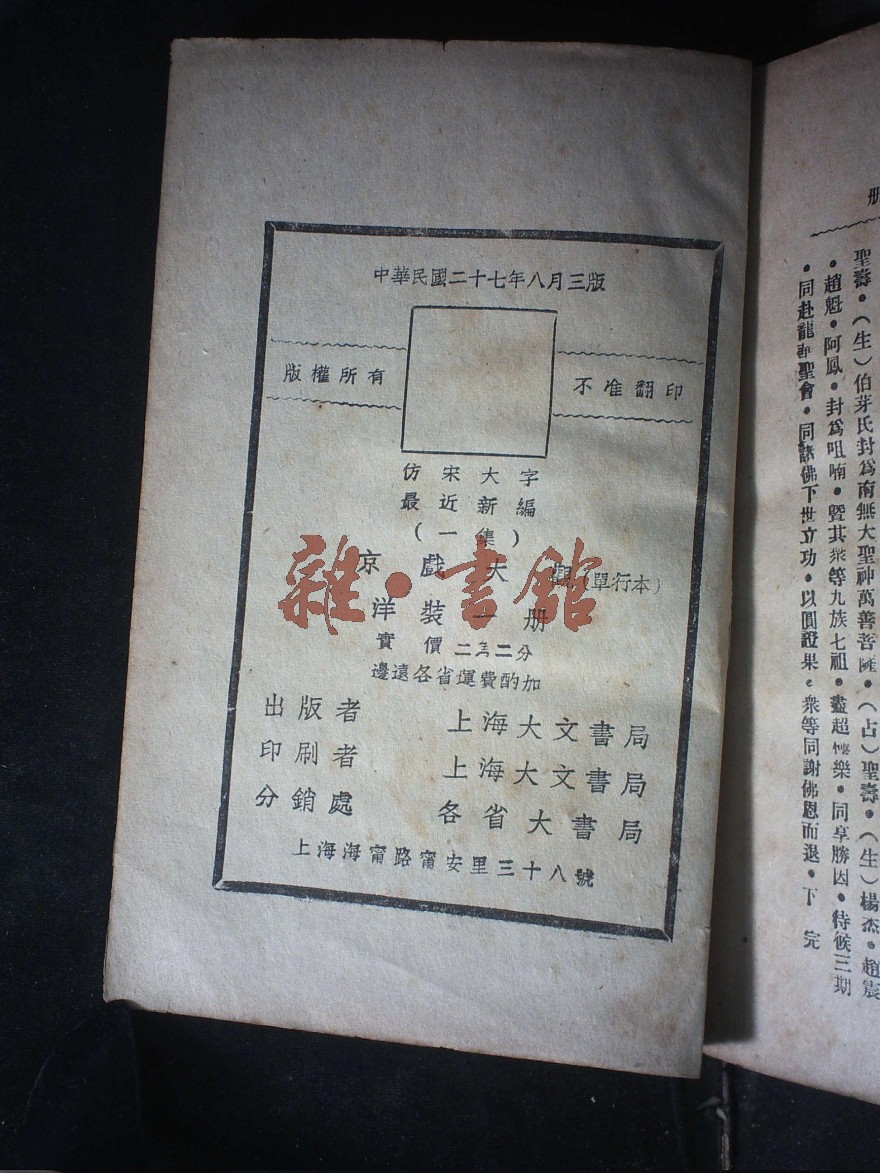 中華民國二十七年八月三版
版權所有
不准翻印
仿宋大字
最近新編
(一集)
京戲大觀(單行本)
洋裝一册
實價二
二分
邊遠各省運費酌加
出版者 上海大文書局
印刷者 上海大文書局
分銷處 各省大書局
上海海甯路甯安里三十八號
雜·書館
册
聖壽•(生)伯芽氏封爲南無大聖神萬善菩薩•(占)聖壽•(生)楊杰•趙震
•趙魁•阿鳳•封爲咀喃•曁其衆等九族七祖•盡超極樂•同享勝因•待候三期
•同赴龍華聖會•同諸佛下世立功•以圓證果•衆等同謝佛恩而退•下 完